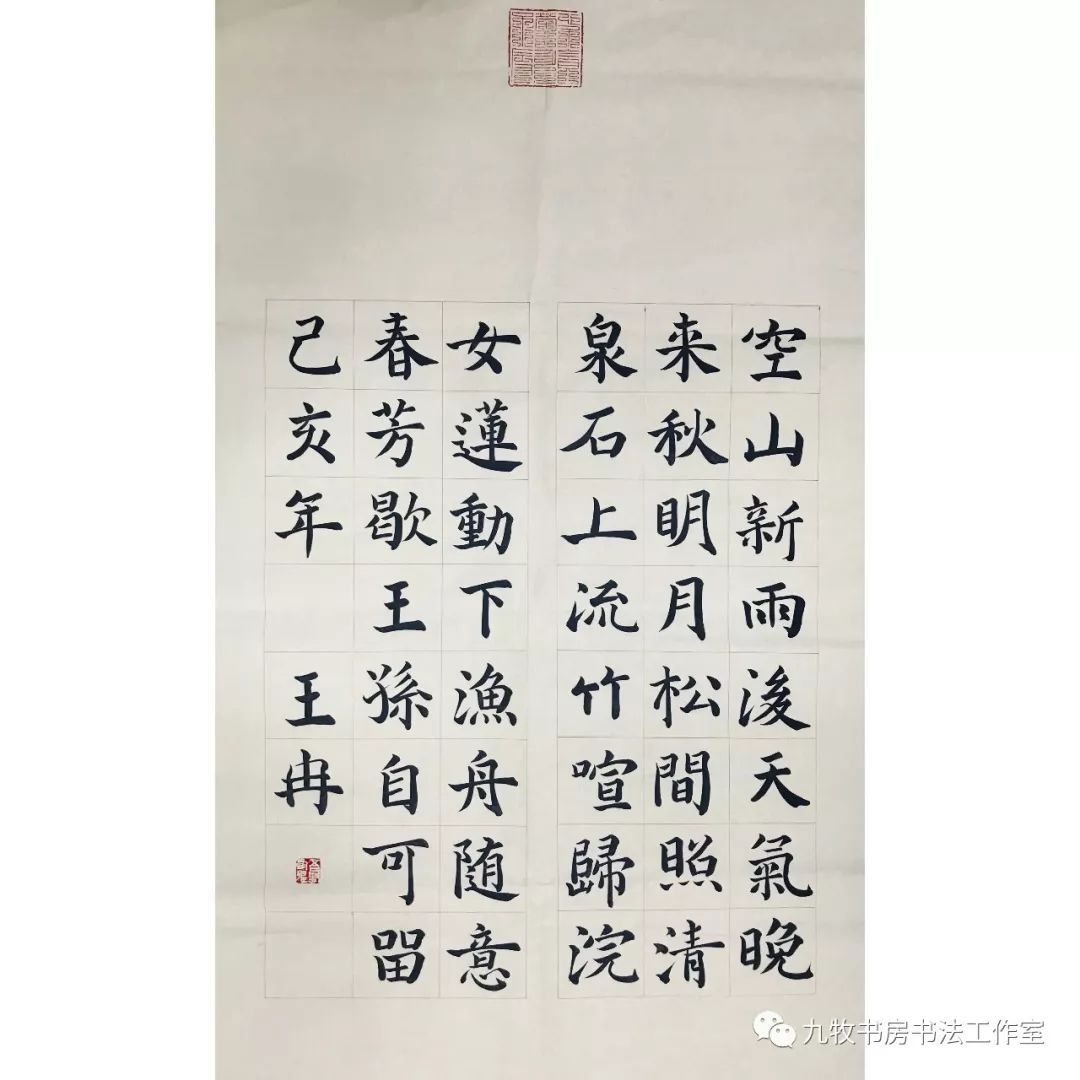 空山新雨後天氣晚
来秋明月松間照清
泉石上流竹喧歸浣
女蓮動下漁舟随意
春芳歇王孫自可留
己亥年 王冉
九牧书房书法工作室